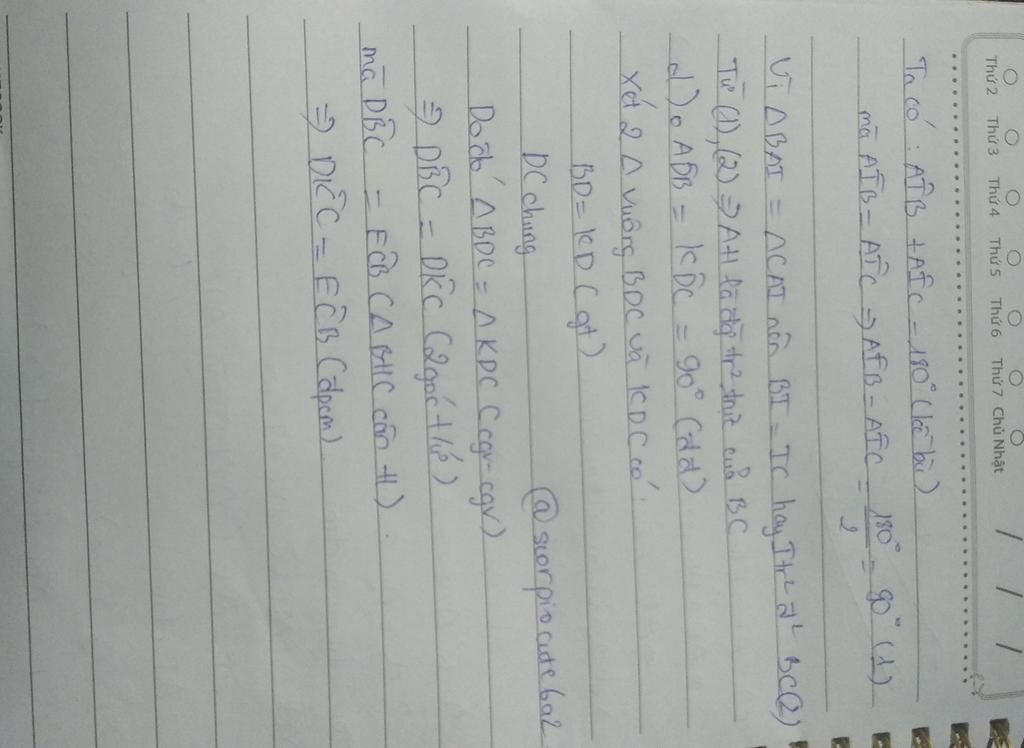 Thứ 2 Thứ 3 Thứ 4 Thứ 5 Thứ 6 Thứ 7 Chủ Nhật / / /
Ta có: AÎB + AÎC = 180° (kề bù)
mà AÎB = AÎC ⇒ AÎB = AÎC = 180°/2 = 90° (1)
Vì △BAI = △CAI nên BI = IC hay I tr² d² BC(2)
Từ (1),(2) ⇒ AH là đg tr² trực của BC
d) o AD̂B = KD̂C = 90° (dd)
Xét 2 △ vuông BDC và KDC có:
BD = KD (gt)
DC chung
@scorpiocute6a2
Do đó △BDC = △KDC (cgv-cgv)
⇒ DB̂C = DK̂C (2 góc t/ứ)
mà DB̂C = EĈB (△BHC cân H)
⇒ DK̂C = EĈB (đpcm)